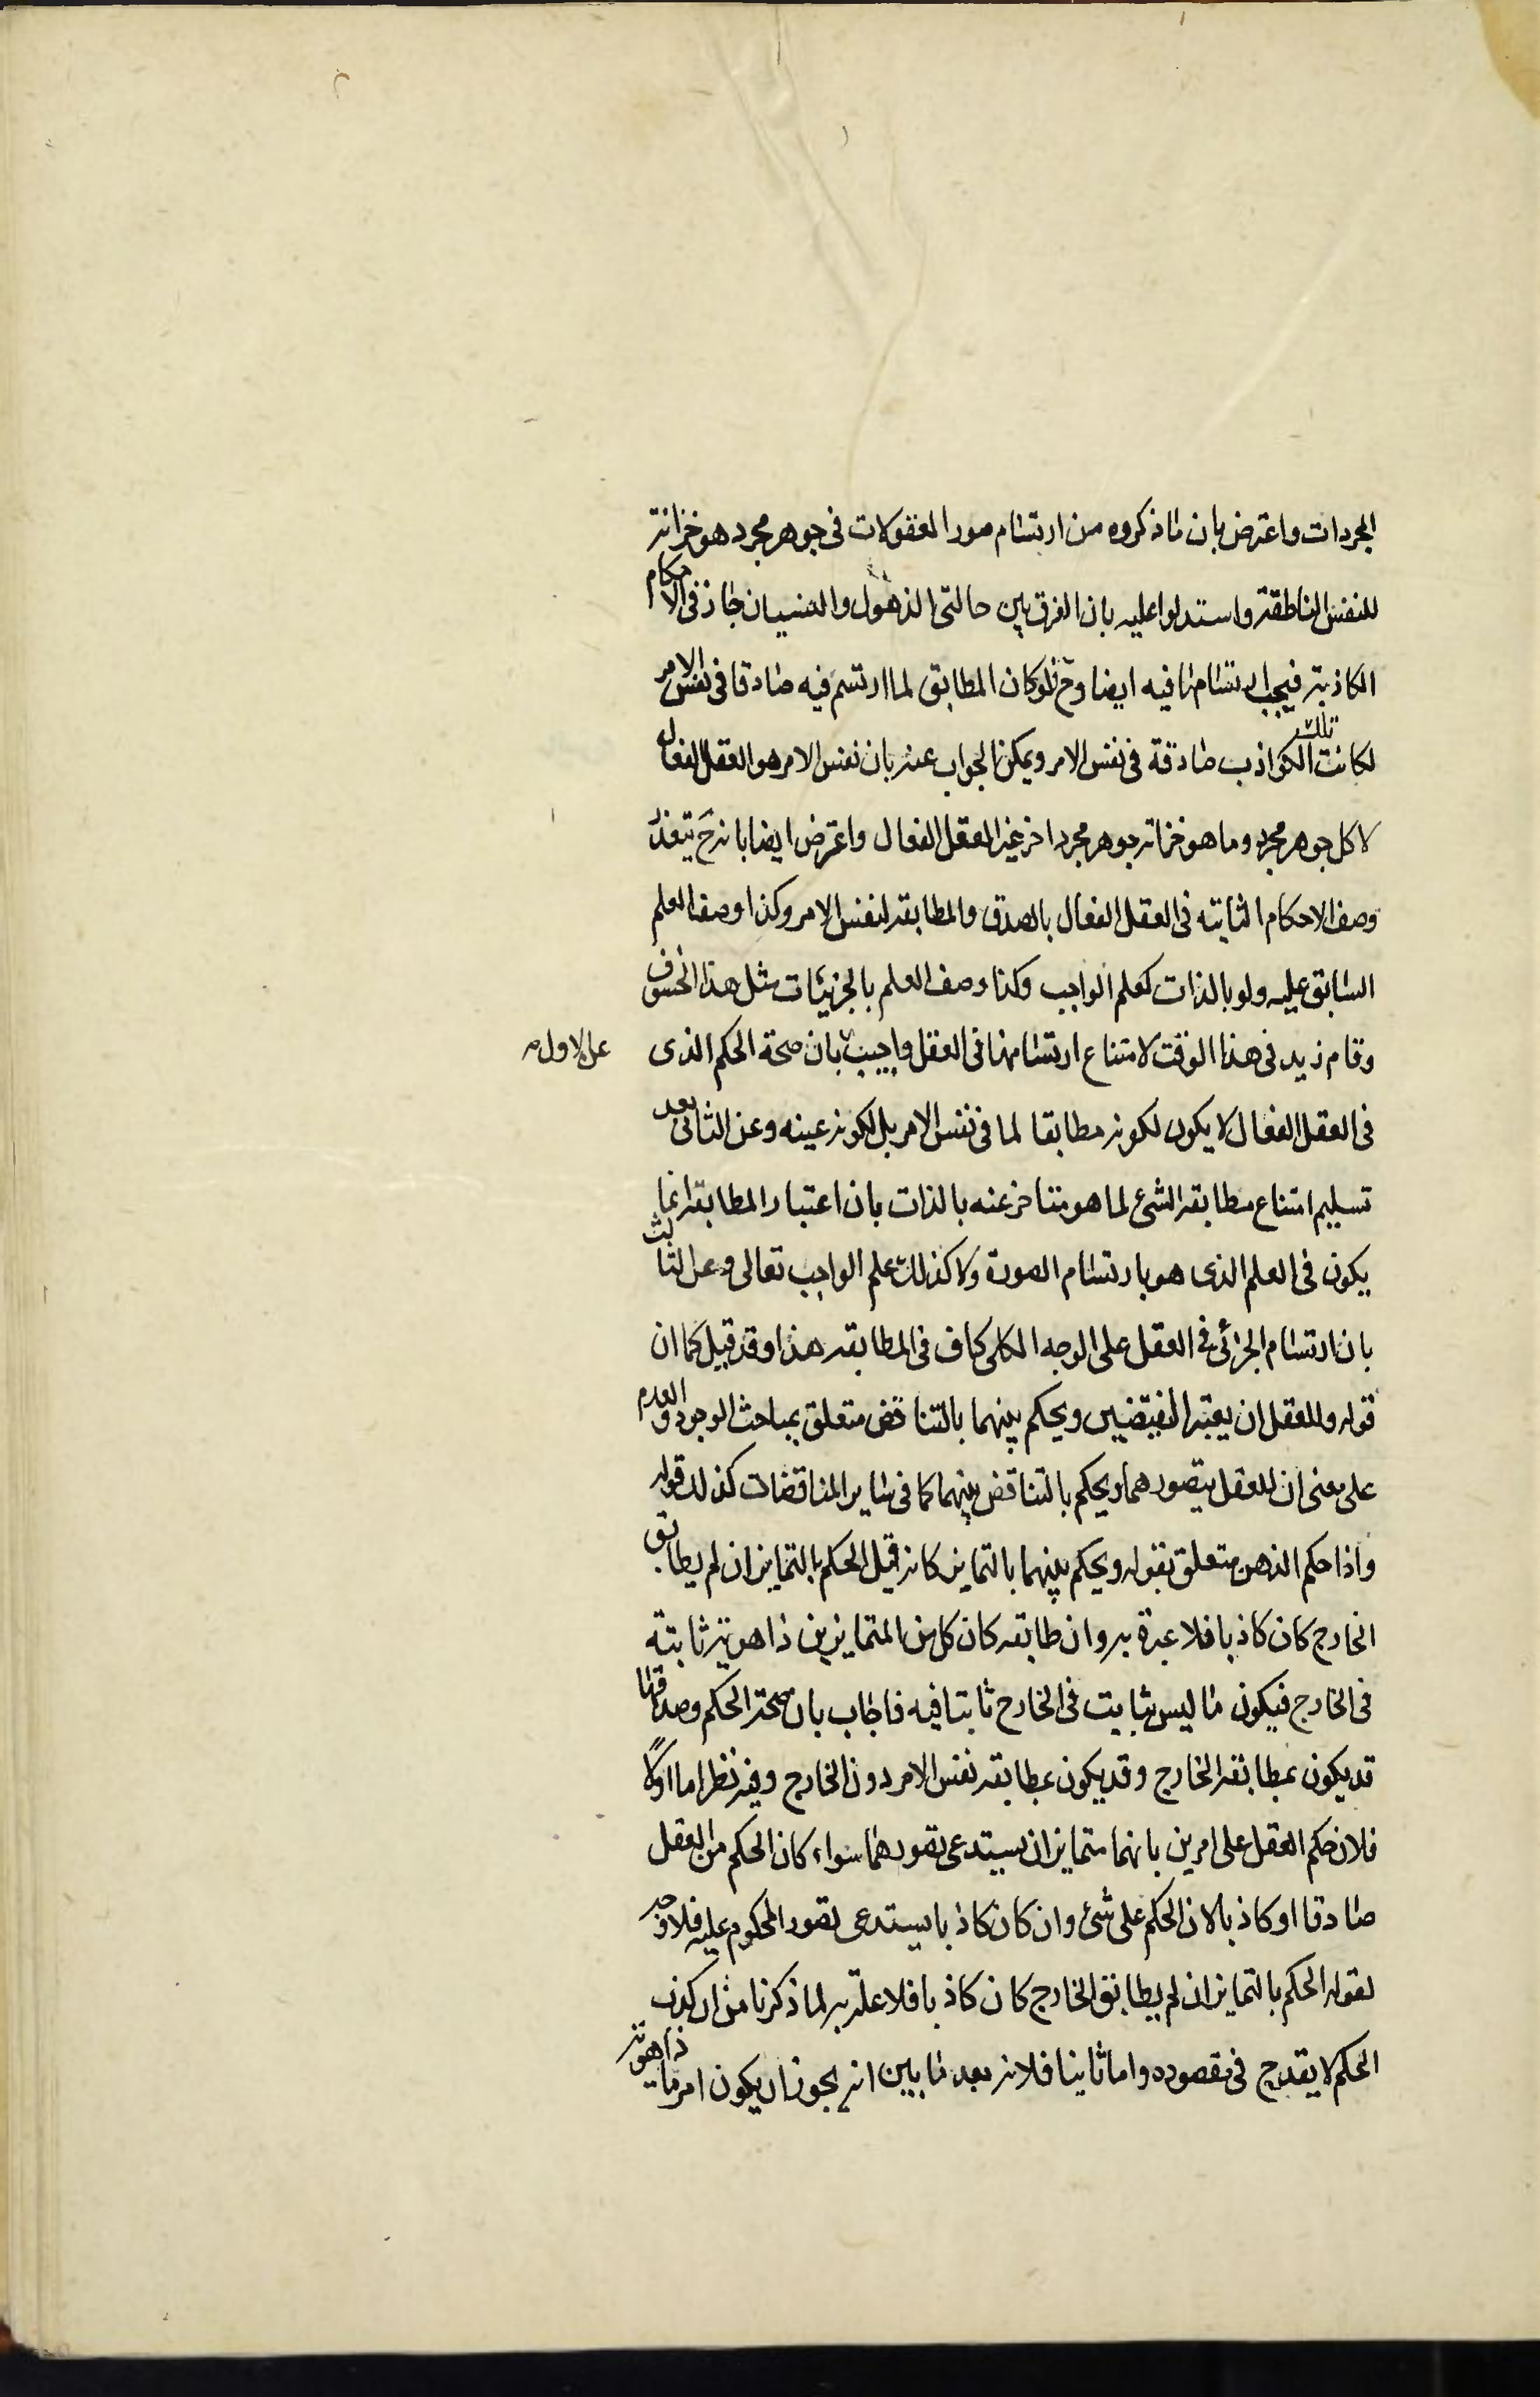 المجردات واعترض بان ما ذكروه من ارتسام صور المعقولات فى جوهر مجرد هو خزانة
للنفس الناطقة واستدلوا عليه بان الفرق بين حالتى الذهول والنسيان جاز فى الاحكام
الكاذبة فيجب ارتسامها فيه ايضا وح فلو كان المطابق لما ارتسم فيه صادقا فى نفس الامر
لكانت تلك الكواذب صادقة فى نفس الامر ويمكن الجواب عنه بان نفس الامر هو العقل الفعال
لا كل جوهر مجرد وما هو خزانة جوهر مجرد اخر غير العقل الفعال واعترض ايضا بانه ح يتعذر
وصف الاحكام الثابته فى العقل الفعال بالصدق والمطابقه لنفس الامر وكذا وصف العلم
السابق عليه ولو بالذات كعلم الواجب وكذا وصف العلم بالجزئيات مثل هذا الخسوف
وقام زيد فى هذا الوقت لامتناع ارتسامها فى العقل واجيب بان صحة الحكم الذى
عن الاول
فى العقل الفعال لا يكون لكونه مطابقا لما فى نفس الامر بل لكونه عينه وعن الثانى بعد
تسليم امتناع مطابقه الشئ لما هو متاخر عنه بالذات بان اعتبار المطابقه انما
يكون فى العلم الذى هو بارتسام الصورة ولا كذلك علم الواجب تعالى وعن الثالث
بان ارتسام الجزئى فى العقل على الوجه الكلى كاف فى المطابقه هذا وقد قيل كما ان
قوله وللعقل ان يعتبر النقيضين ويحكم بينهما بالتناقض متعلق بمباحث الوجود والعدم
على معنى ان للعقل يتصورهما ويحكم بالتناقض بينهما كما فى ساير المناقضات كذلك قوله
واذا حكم الذهن متعلق بقوله ويحكم بينهما بالتمايز كانه قيل الحكم بالتمايز ان لم يطابق
الخارج كان كاذبا فلا عبرة به وان طابقه كان كل من المتمايزين ذا هوية ثابتة
فى الخارج فيكون ما ليس بثابت فى الخارج ثابتا فيه فاجاب بان صحة الحكم وصدقها
قد يكون بمطابقه الخارج وقد يكون بمطابقه نفس الامر دون الخارج وفيه نظر اما اولا
فلان حكم العقل على امرين بانهما متمايزان يستدعى تصورهما سواء كان الحكم من العقل
صادقا او كاذبا لان الحكم على شئ وان كان كاذبا يستدعى تصور المحكوم عليه فلا وجه
لقوله الحكم بالتمايز ان لم يطابق الخارج كان كاذبا فلا علة به لما ذكرنا من ان كذب
الحكم لا يقدح فى مقصوده واما ثانيا فلانه بعد ما بين انه يجوز ان يكون امر ما ذا هوية